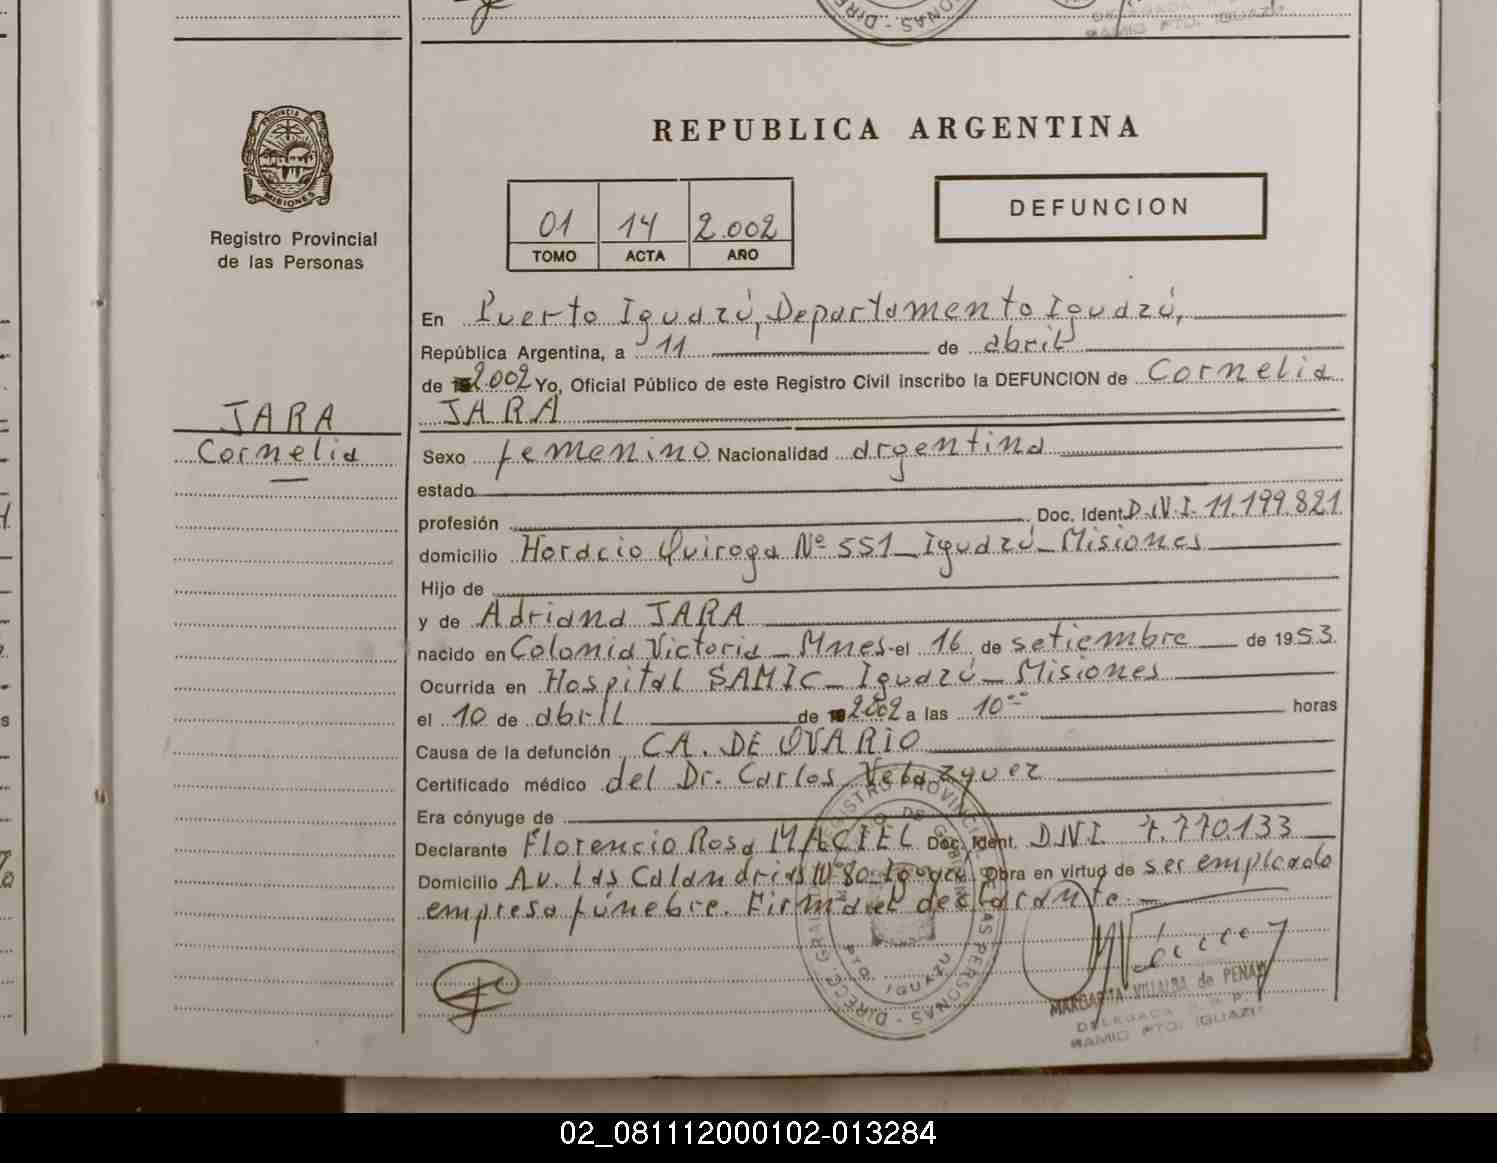 REPUBLICA ARGENTINA
PROVINCIA DE
MISIONES
Registro Provincial
de las Personas
01 14 2.002
TOMO ACTA AÑO
DEFUNCION
En Puerto Iguazú, Departamento Iguazú,
República Argentina, a 11 de abril
de 2.002 Yo, Oficial Público de este Registro Civil inscribo la DEFUNCION de Cornelia
JARA
JARA
Cornelia
Sexo femenino Nacionalidad argentina
estado
profesión Doc. Ident. D.N.I. 11.199.821
domicilio Horacio Quiroga Nº 551 - Iguazú - Misiones
Hijo de
y de Adriana JARA
nacido en Colonia Victoria - Mnes - el 16 de setiembre de 1953.
Ocurrida en Hospital SAMIC - Iguazú - Misiones
el 10 de abril de 2002 a las 10 horas
Causa de la defunción CA. DE OVARIO
Certificado médico del Dr. Carlos Velazquez
Era cónyuge de
Declarante Florencio Rosa MACIEL Doc. Ident. D.N.I. 7.770.133
Domicilio Av. Las Calandrias Nº 80 - Iguazú Obra en virtud de ser empleado
empresa fúnebre. Firma el declarante.
MARGARITA VILLALBA de PENAY
DELEGADA
SAMIC PTO. IGUAZU
02_081112000102-013284